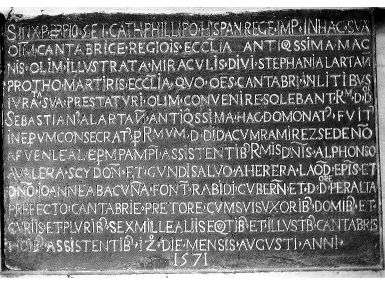 SIIXP ET CATH PHILLIPO HISPAN REGE IMP IN HAC SVA
OIM CANTABRICE REGIOIS ECCLIA ANTIQSSIMA MAC
NIS OLIM ILLVSTRATA MIRACVLIS DIVI STEPHANI ALARTAN
PROTHO MARTIRIS ECCLIA QVO OES CANTABRI IN LITIBVS
IVRA SVA PRESTATVRI OLIM CONVENIRE SOLEBANT RM D D
SEBASTIANI ALARTAN ANTIQSSIMA HAC DOMO NAT FVIT
IN EPVM CONSECRAT P RMVM D DIDACVM RAMIREZ SEDENO
A FVENLEAL EPM PAMPI ASSISTENTIB RMIS DNIS ALPHONSO
A VALERA SCYDON ET GVNDISALVO A HERERA LAOD EPIS ET
DNO IOANNE A BACVNA FONT RABIDI CVBERN ET D D PERALTA
PREFECTO CANTABRIE PRETORE CVM SVIS VXORIB DOMIB ET
CVRIIS ET PLVRIB SEX MILLE ALIIS EQTIB ET ILLVSTB CANTABRIS
ASSISTENTIB IZ DIE MENSIS AVGVSTI ANNI
1571